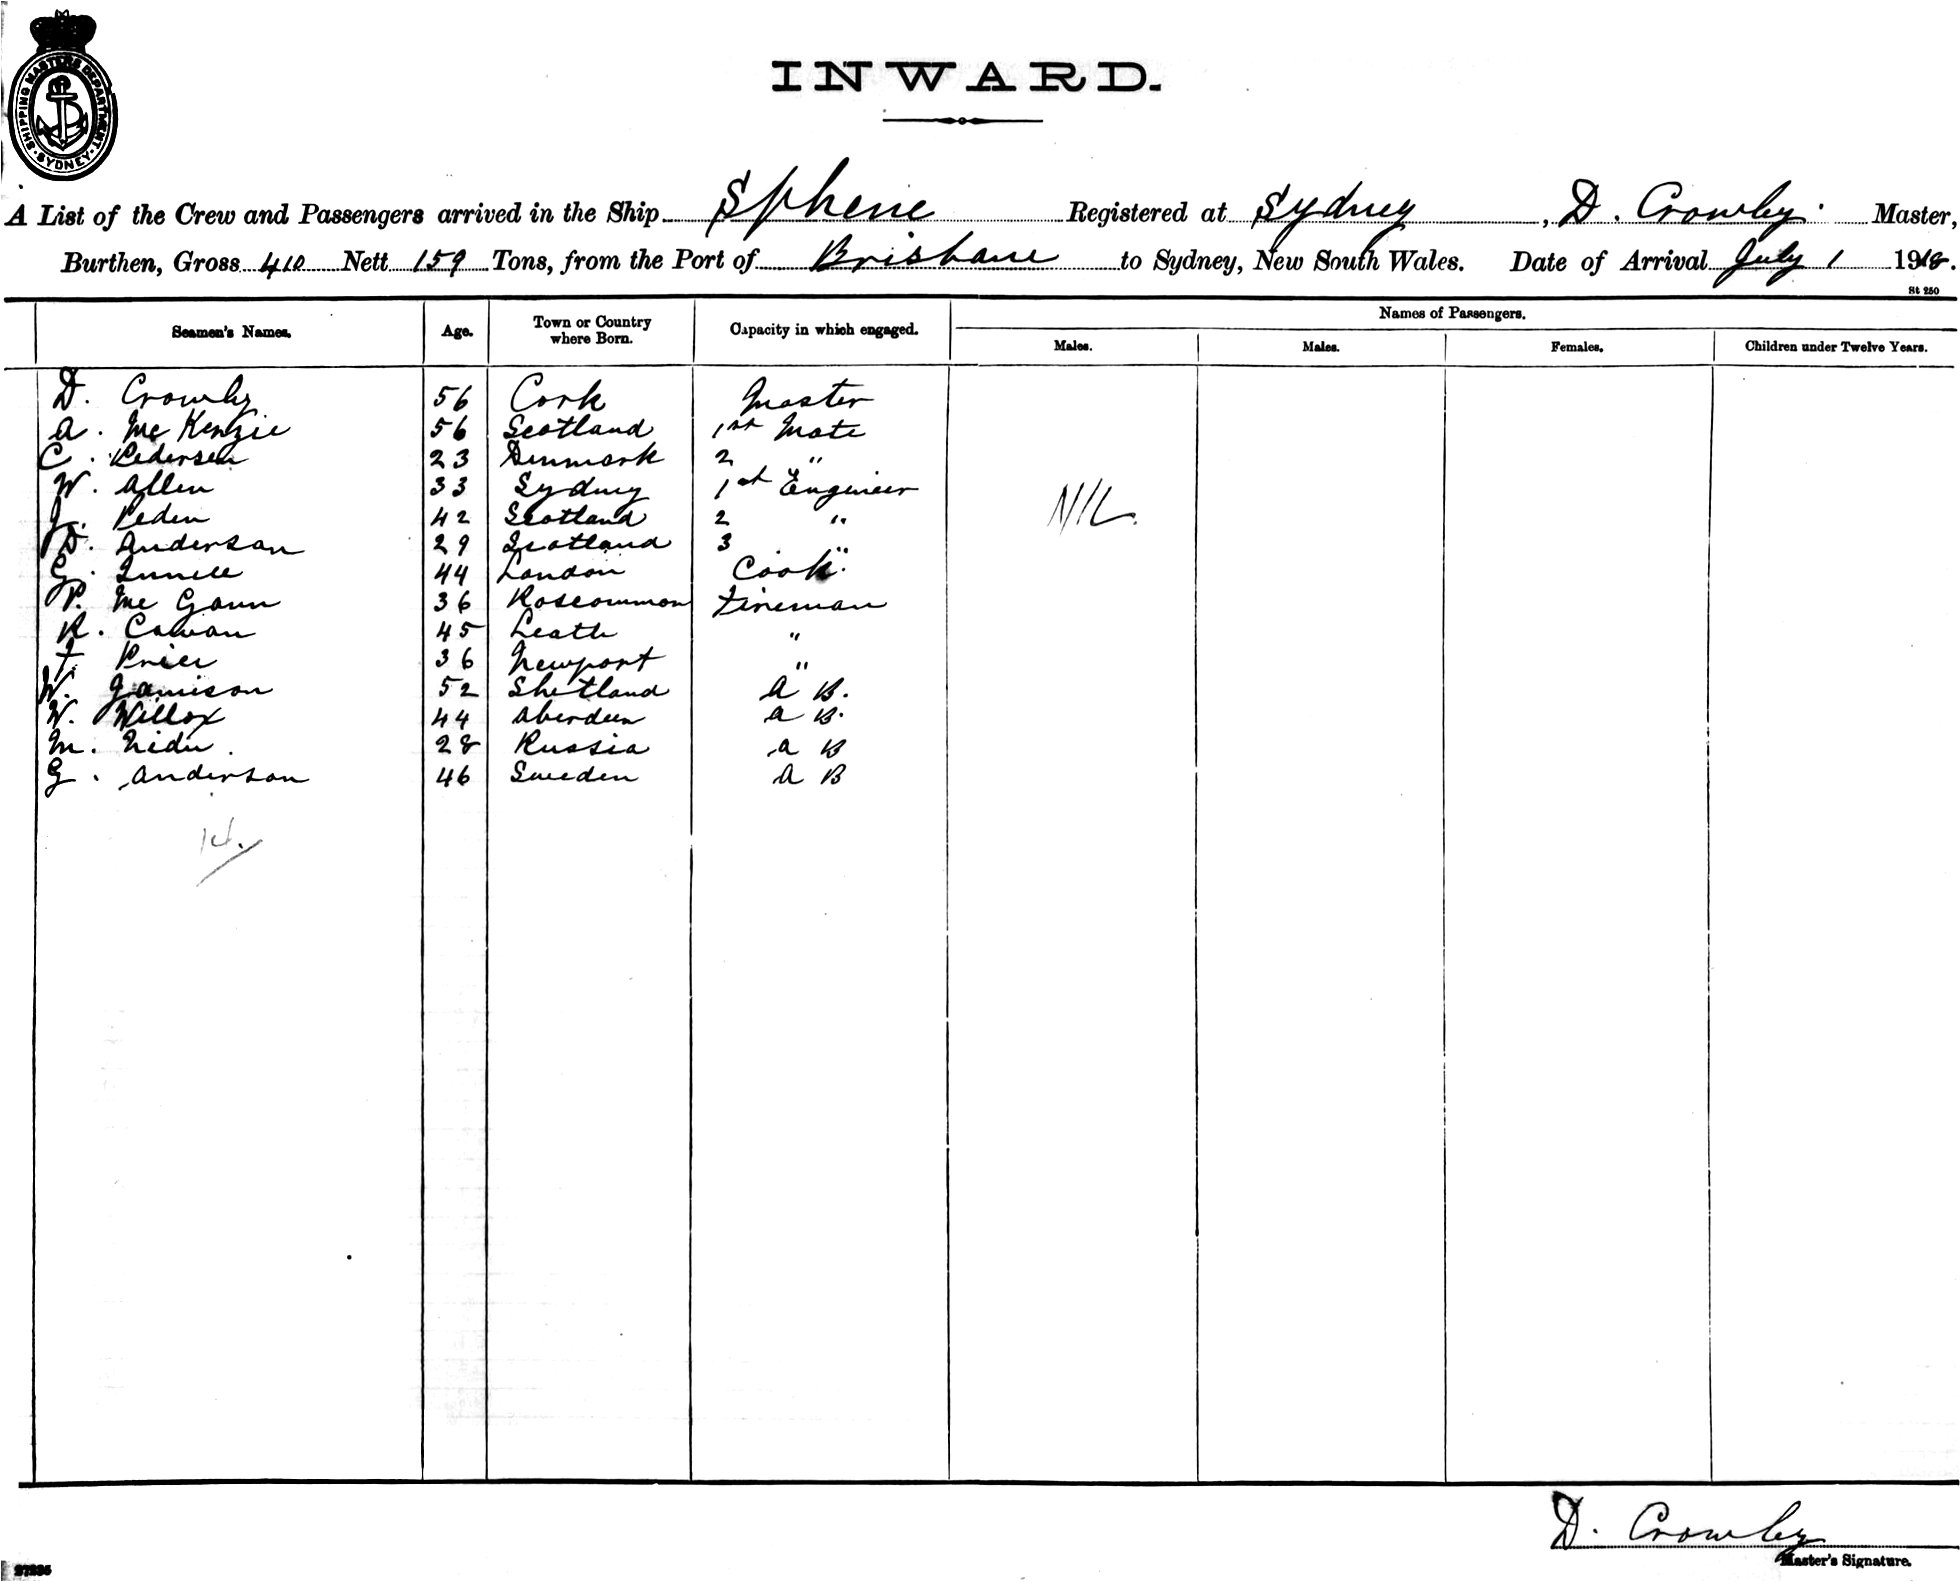 SHIPPING MASTERS DEPARTMENT SYDNEY
INWARD.
A List of the Crew and Passengers arrived in the Ship Sphene Registered at Sydney, D. Crowley Master,
Burthen, Gross 410 Nett 159 Tons, from the Port of Brisbane to Sydney, New South Wales. Date of Arrival July 1 1918.
St 250
Seamen's Names. Age. Town or Country where Born. Capacity in which engaged. Names of Passengers.
Males. Males. Females. Children under Twelve Years.
D. Crowley 56 Cork Master
A. McKenzie 56 Scotland 1st Mate
C. Pedersen 23 Denmark 2 "
W. Allen 33 Sydney 1st Engineer
NIL.
J. Peden 42 Scotland 2 "
D. Anderson 29 Scotland 3 "
G. 44 London Cook
P. McGann 36 Roscommon Fireman
R. Cowan 45 Leath "
F. Price 36 Newport "
W. Jamison 52 Shetland A B.
W. Willox 44 Aberdeen A B.
M. 28 Russia A B
G. Anderson 46 Sweden A B
14.
D. Crowley
Master's Signature.